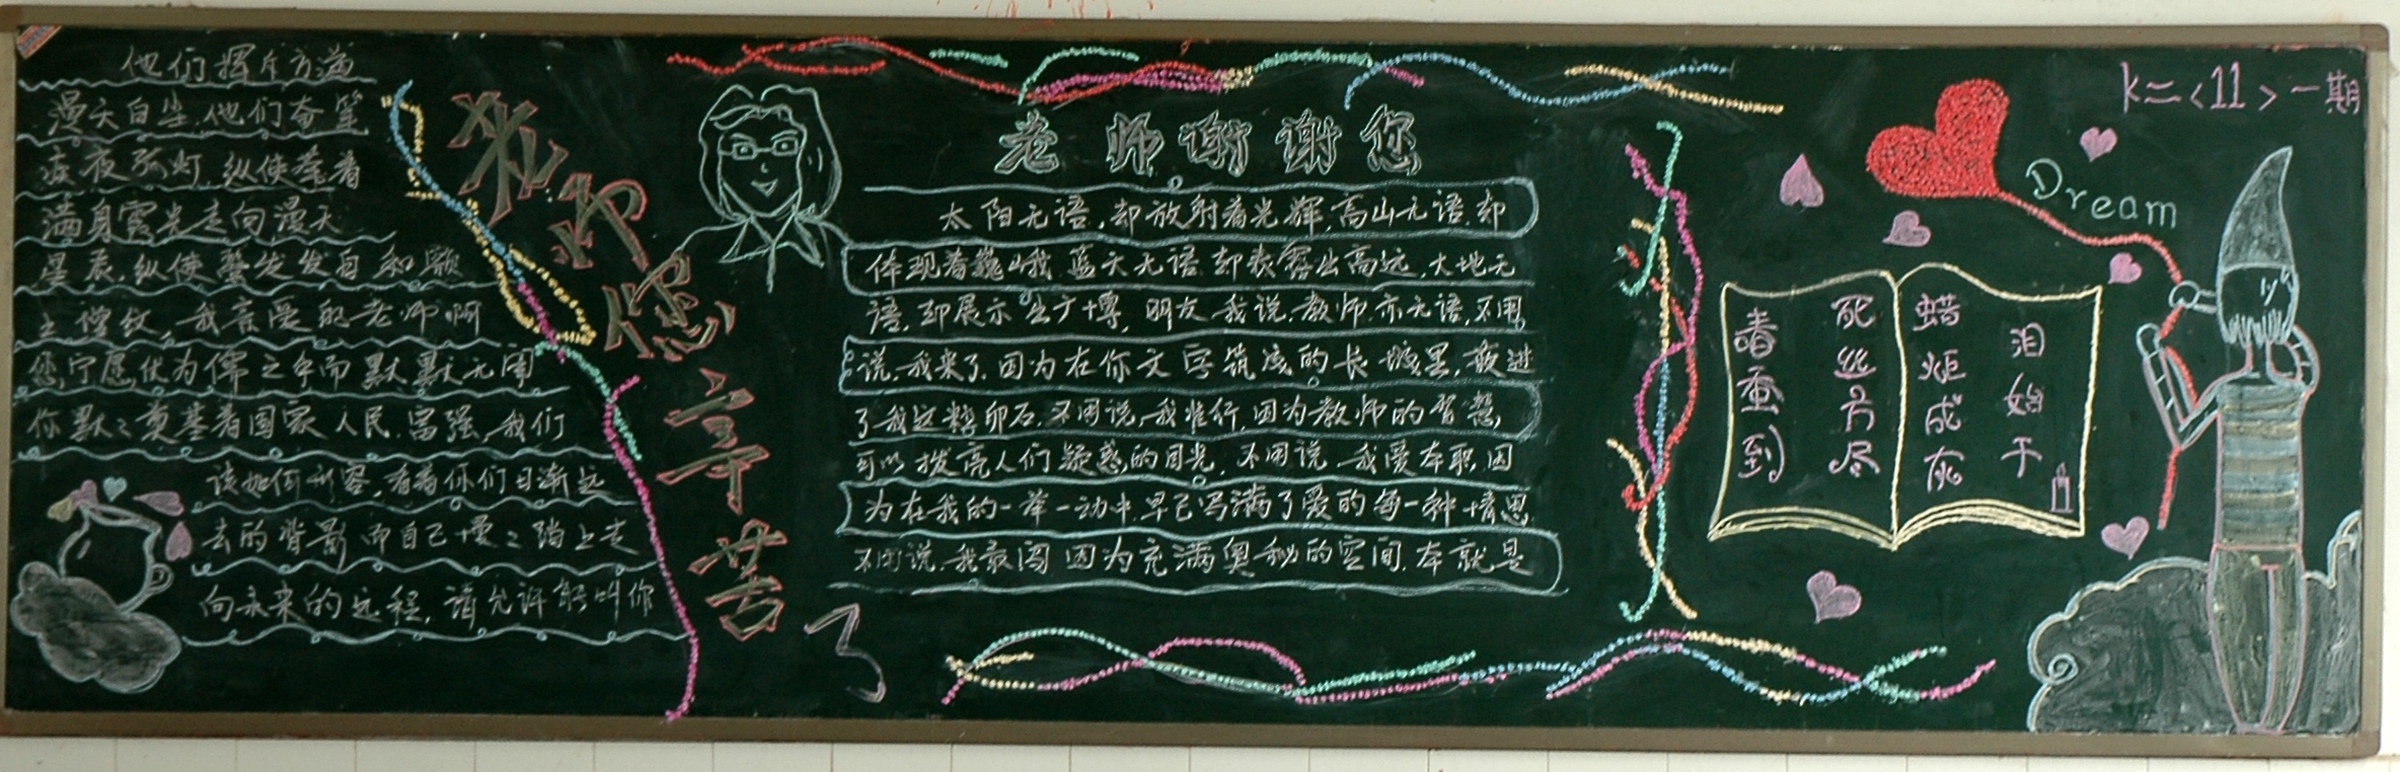 他们挥斥方遒
漫天白尘,他们奋笔
疾夜孤灯,纵使牵着
满身霞光走向漫天
星辰,纵使鬓发发白和额
上慢纹,我亲爱的老师啊
您宁愿伏为儒之牛而默默无闻
你默默奠基着国家人民富强,我们
该如何形容,看着你们日渐远
去的背影而自己慢慢踏上走
向未来的远程,请允许能叫你
老师您辛苦了
老师谢谢您
太阳无语,却放射着光辉,高山无语,却
体现着巍峨,蓝天无语,却表露出高远,大地无
语,却展示出广博,朋友,我说:教师亦无语,不用
说,我来了,因为在你文字筑成的长城里,嵌进
了我这粒卵石,不用说,我准行,因为教师的智慧,
可以拨亮人们疑惑的目光,不用说,我爱本职,因
为在我的一举一动中,早已写满了爱的每一种情思
不用说,我敢闯,因为充满奥秘的空间,本就是
k二<11>一期
Dream
春蚕到
死丝方尽
蜡炬成灰
泪始干